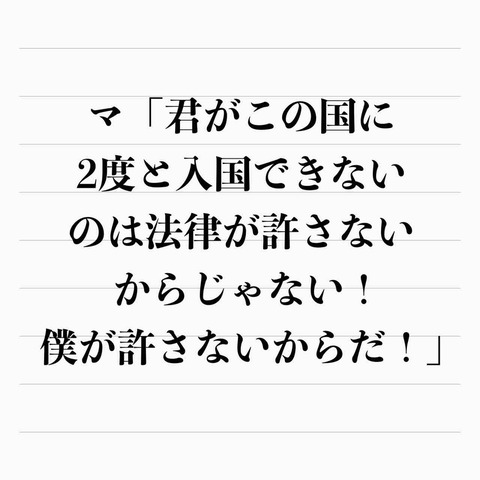 マ「君がこの国に
2度と入国できない
のは法律が許さない
からじゃない！
僕が許さないからだ！」